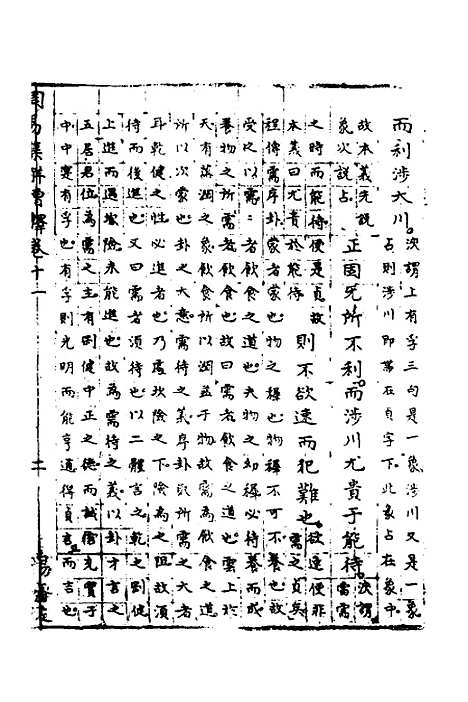 而利涉大川。
决謂上有孚三句是一象涉川又是一象
占則涉川即帶在貞字下此象占在象中
故本義先說
象次說占
正固无所不利而涉川尤貴于能待
决謂
需需
之時而能待便是貞故
本義曰尤貴於能待
則不欲速而犯難也
故速便非
需之貞矣
程傳需序卦蒙者蒙也物之穉也物穉不可不養也故
受之以需需者飲食之道也夫物之幼穉必待養而成
養物之所需者飲食也故曰需者飲食之道也雲上於
天有蒸潤之象飲食所以潤益于物故需為飲食之道
所以次蒙也卦之大意需待之義序卦取所需之大者
耳乾健之性必進者也乃處坎險之下險為之阻故須
待而後進也又曰需者須待也以二體言之乾之剛健
上進而遇坎險未能進也故為需待之義以卦才言之
五居君位為需之主有剛健中正之德而誠信充實于
中中實有孚也有孚則光明而能亨通得貞吉而吉也
周易集解增釋卷十二
二
易齋